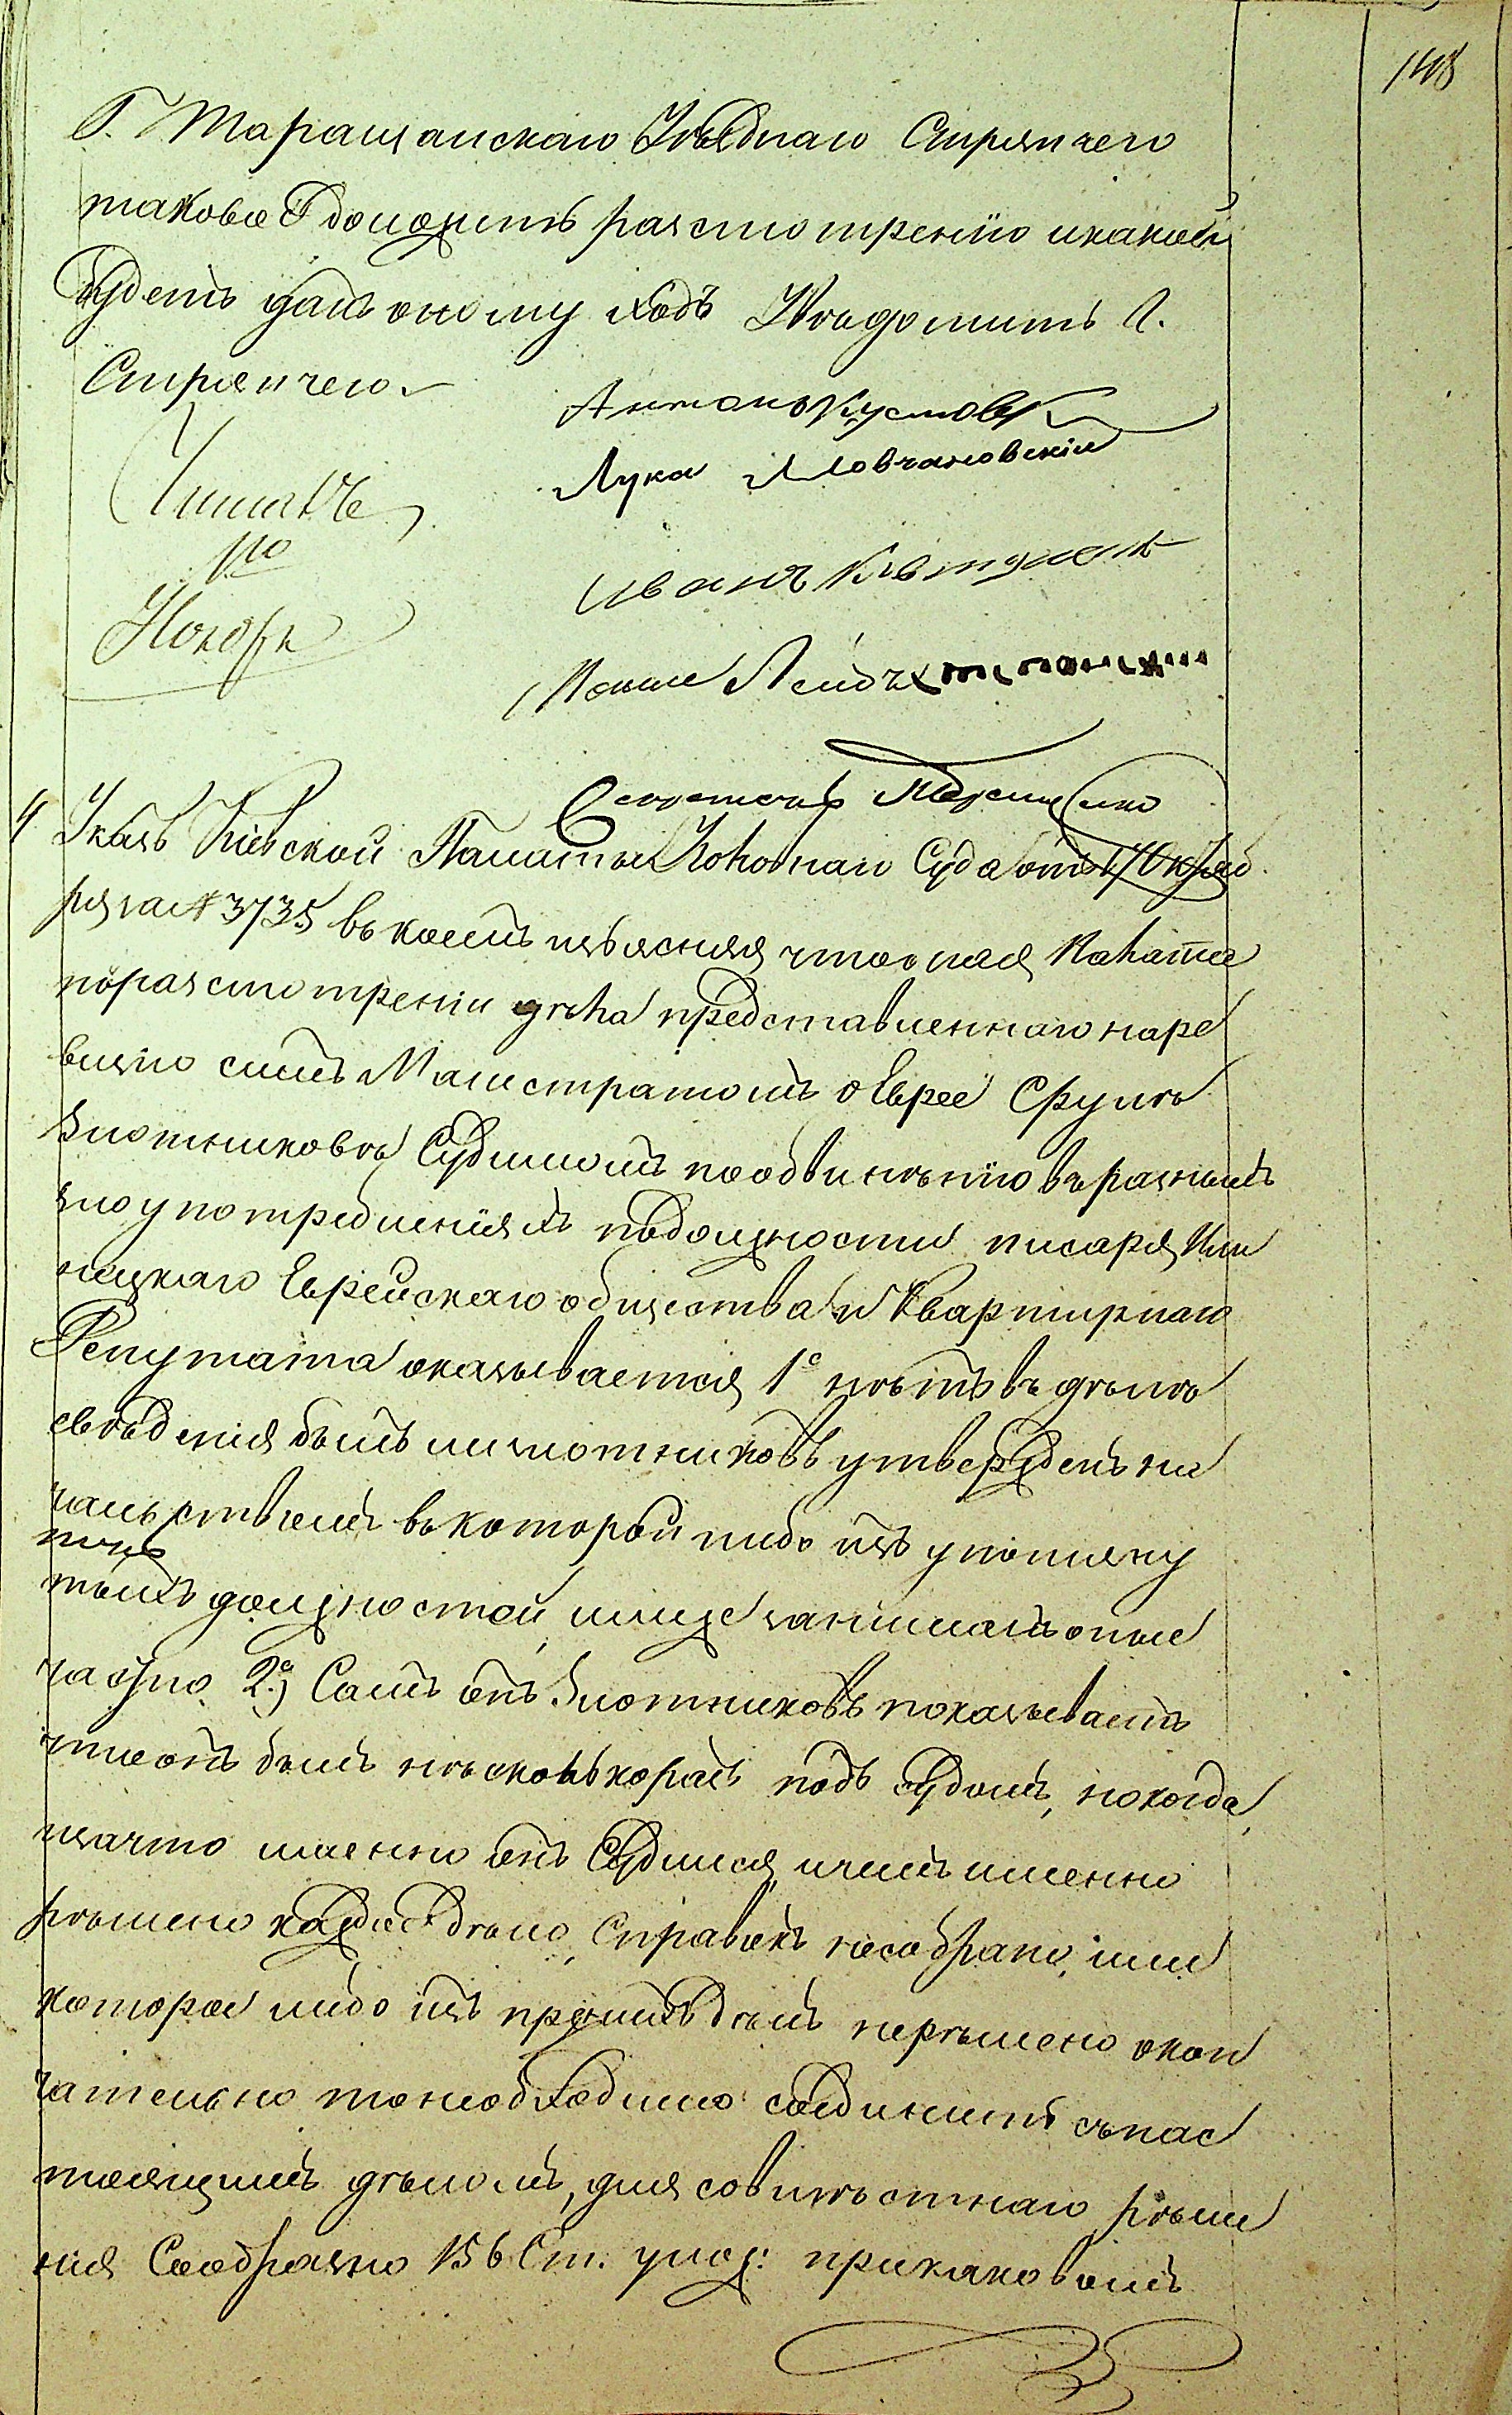 148
Г. Таращанскаго Уѣзднаго Стряпчего
таковое доложить разсмотренію и какой
будетъ данъ оному ходъ Увѣдомить Г.
Стряпчего.
Антонъ
Лука Мовчановскій
Иванъ
Мошко
Секретарь
4 Указъ Кіевской Палаты Уголовнаго Суда отъ 17 Октяб
ря за № 3735 въ коемъ изъясняя что оная Палата
по разсмотреніи дѣла представленнаго на ре
визію симъ Магистратомъ о Еврее Сруль
Злотниковѣ Судимомъ по обвинѣнію въ разныхъ
злоупотребленіяхъ по должности писаря
ницкаго Еврейскаго общества и Квартирнаго
Депутата оказывается 1е нѣтъ въ дѣлѣ
свѣденія былъ ли Злотниковъ утвержденъ на
чальствомъ въ которой либо изъ упомяну
тыхъ должностей, или же занималъ оные
частно 2е) Самъ онъ Злотниковъ показываетъ
что онъ былъ нѣсколько разъ подъ судомъ, но когда,
и за что именно онъ Судился, и чемъ именно
рѣшено каждое дѣло, Справокъ не собрано, или
которое либо изъ прежнихъ дѣлъ не рѣшено окон
чательно то необходимо соединить съ нас
тоящимъ дѣломъ, для совмѣстнаго рѣше
нія Сообразно 156 Ст. улож: при каковомъ